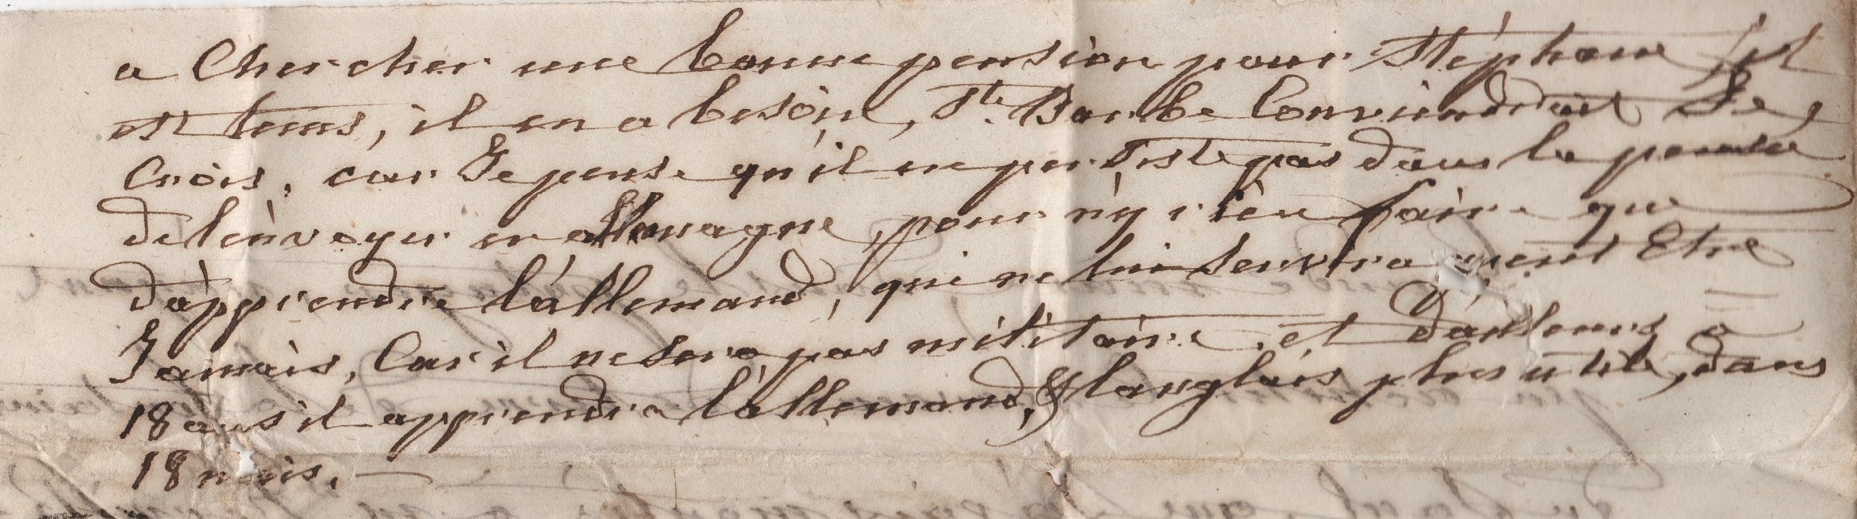 a Chercher une bonne pension pour Stéphane, il
est tems, il en a besoin, Ste. Barbe Conviendrait Je
Crois, car Je pense qu'il ne persiste pas dans la pensée
de l'envoyer en allemagne, pour n'y rien faire que
d'apprendre l'allemand, qui ne lui servira peut Etre
Jamais, Car il ne sera pas militaire, et D'ailleurs a
18 ans il apprendra l'allemand, & l'anglais plus utile, dans
18 mois. —